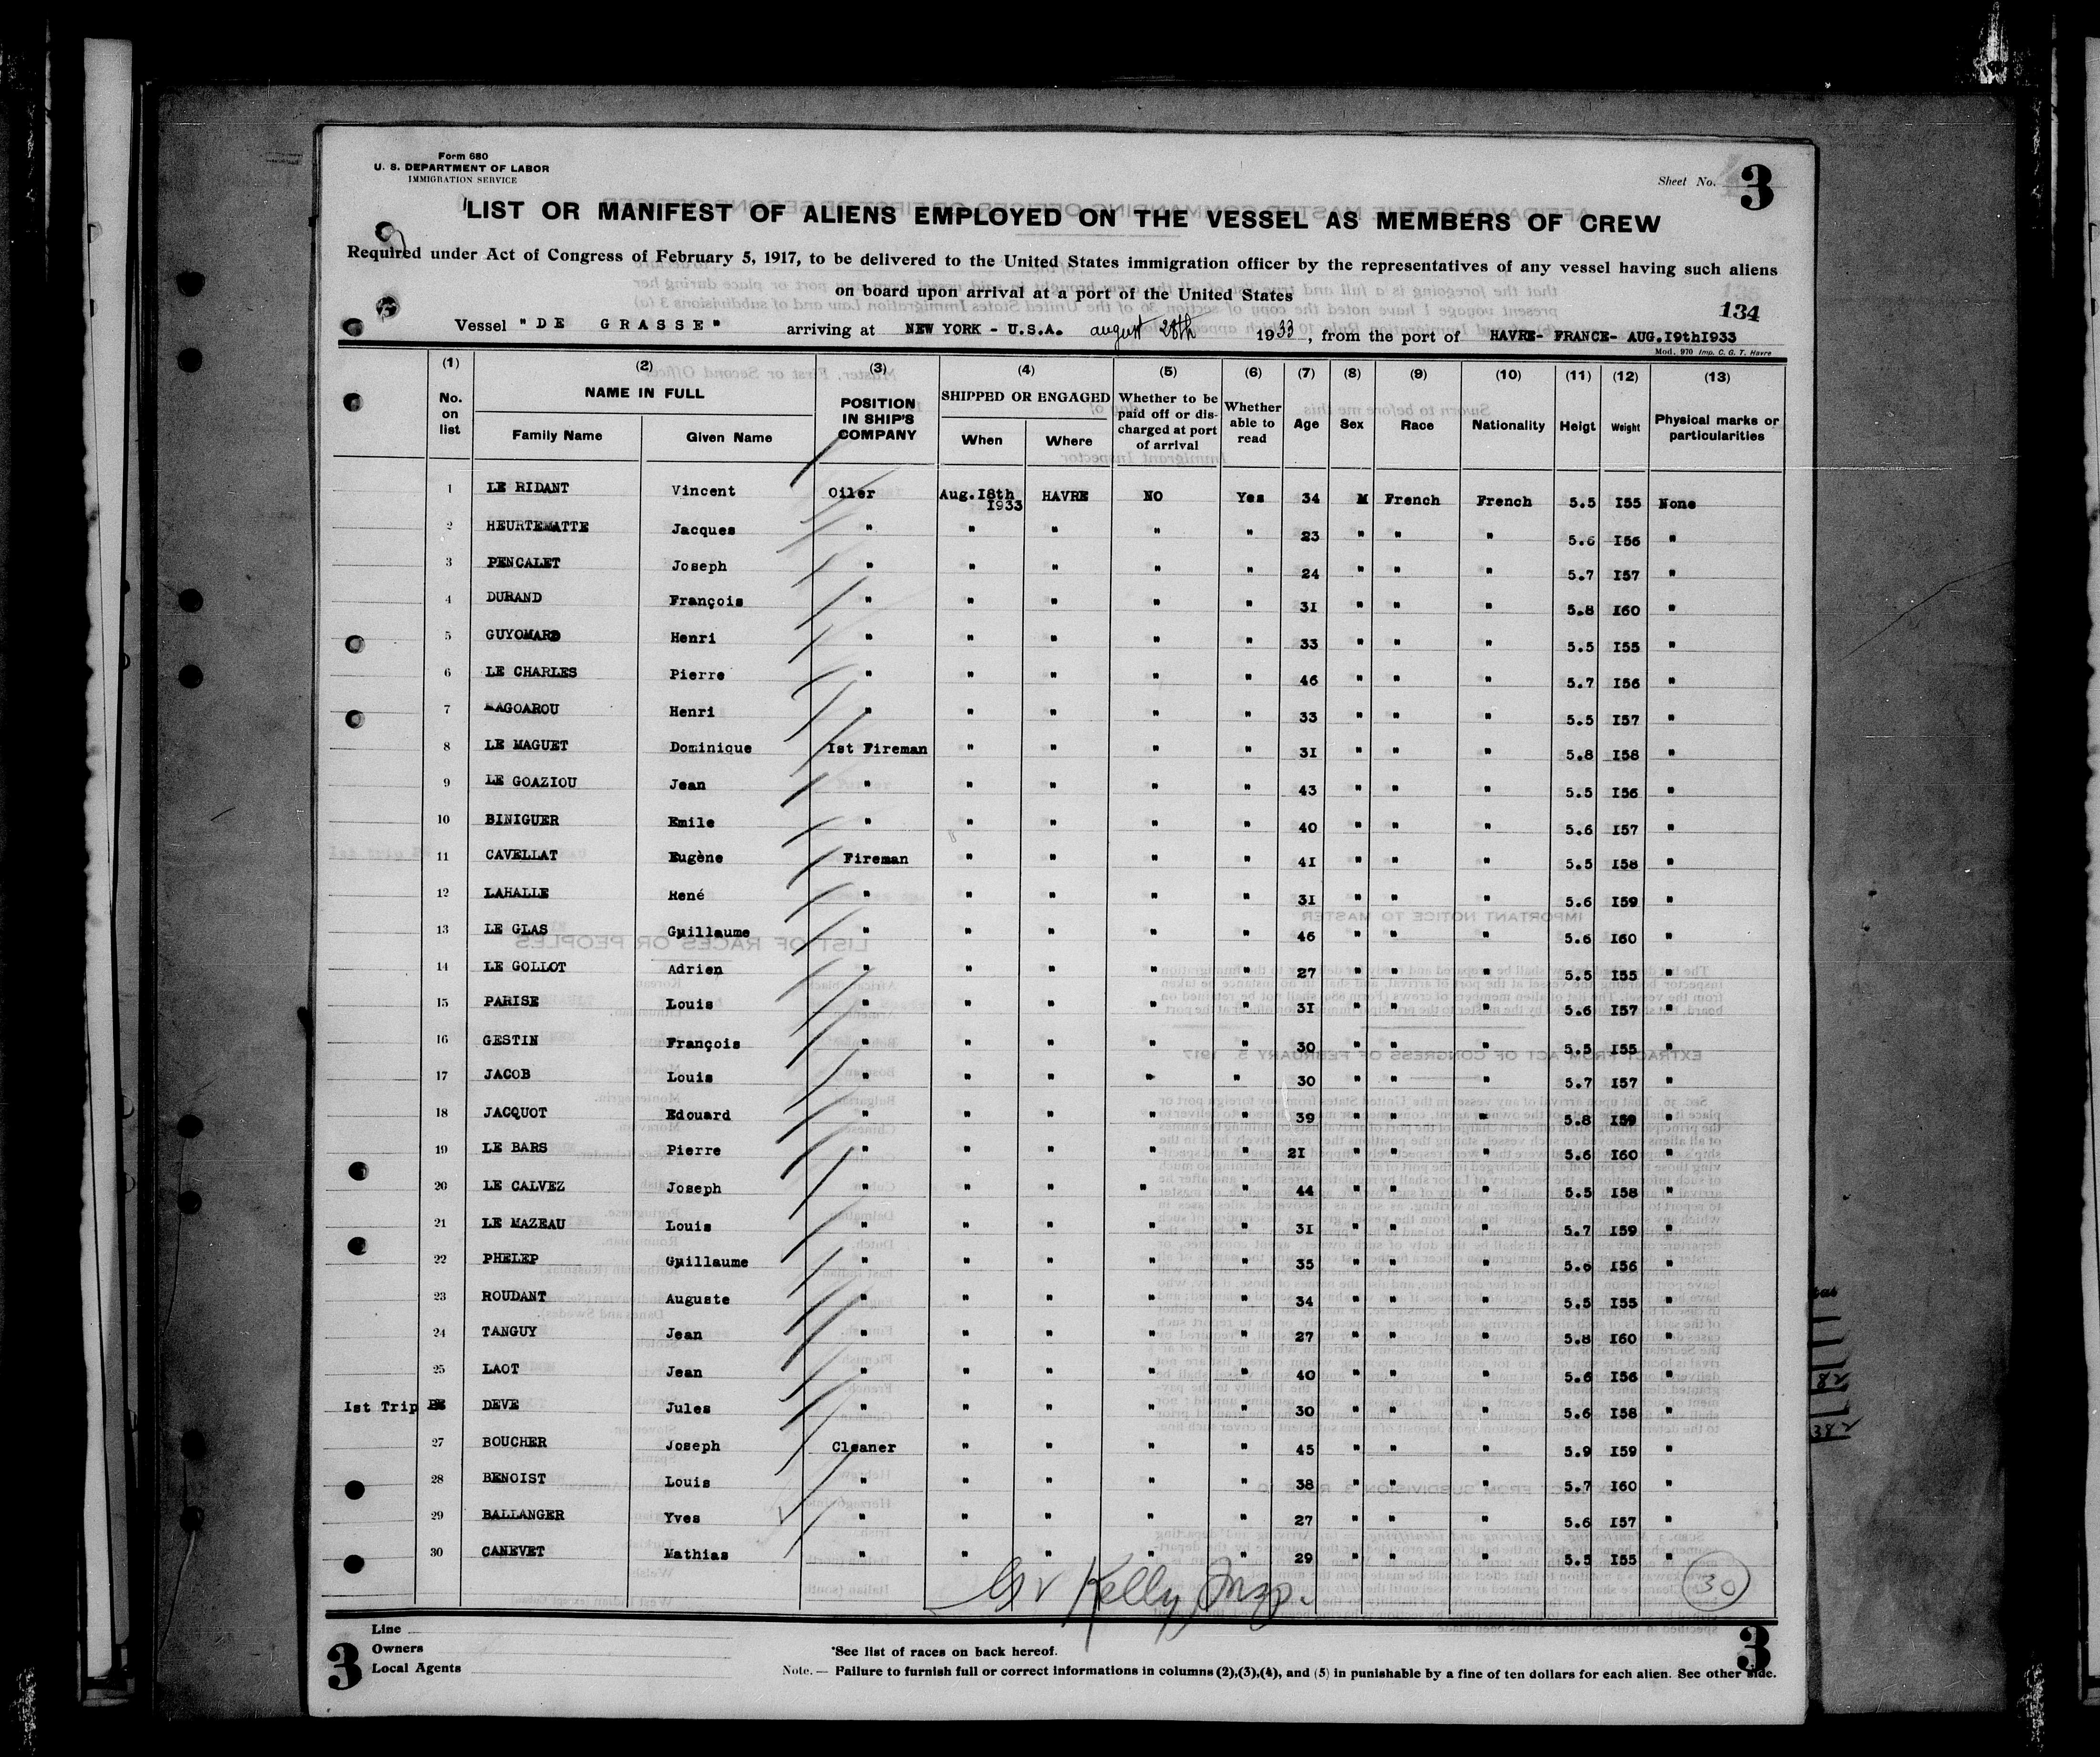 Form 680
U. S. DEPARTMENT OF LABOR
IMMIGRATION SERVICE
Sheet No. 3
LIST OR MANIFEST OF ALIENS EMPLOYED ON THE VESSEL AS MEMBERS OF CREW
Required under Act of Congress of February 5, 1917, to be delivered to the United States immigration officer by the representatives of any vessel having such aliens
on board upon arrival at a port of the United States
134
Vessel "DE GRASSE" arriving at NEW YORK - U.S.A. august 28th 1933, from the port of HAVRE- FRANCE- AUG.I9thI933
Mod. 970 Imp. C. G. T. Havre
(1) (2) (3) (4) (5) (6) (7) (8) (9) (10) (11) (12) (13)
No. on list NAME IN FULL Family Name Given Name POSITION IN SHIP'S COMPANY SHIPPED OR ENGAGED When Where Whether to be paid off or dis-charged at port of arrival Whether able to read Age Sex Race Nationality Heigt Weight Physical marks or particularities
1 LE RIDANT Vincent Oiler Aug.I8th I933 HAVRE NO Yes 34 M French French 5.5 I55 None
2 HEURTEMATTE Jacques " " " " " 23 " " " 5.6 I56 "
3 PENCALET Joseph " " " " " 24 " " " 5.7 I57 "
4 DURAND François " " " " " 3I " " " 5.8 I60 "
5 GUYOMARD Henri " " " " " 33 " " " 5.5 I55 "
6 LE CHARLES Pierre " " " " " 46 " " " 5.7 I56 "
7 MAGOAROU Henri " " " " " 33 " " " 5.5 I57 "
8 LE MAGUET Dominique Ist Fireman " " " " 3I " " " 5.8 I58 "
9 LE GOAZIOU Jean " " " " " 43 " " " 5.5 I56 "
10 BINIGUER Emile " " " " " 40 " " " 5.6 I57 "
11 CAVELLAT Eugène Fireman " " " " 4I " " " 5.5 I58 "
12 LAHALLE René " " " " " 3I " " " 5.6 I59 "
13 LE GLAS Guillaume " " " " " 46 " " " 5.6 I60 "
14 LE GOLLOT Adrien " " " " " 27 " " " 5.5 I55 "
15 PARISE Louis " " " " " 3I " " " 5.6 I57 "
16 GESTIN François " " " " " 30 " " " 5.5 I55 "
17 JACOB Louis " " " " " 30 " " " 5.7 I57 "
18 JACQUOT Edouard " " " " " 39 " " " 5.8 I59 "
19 LE BARS Pierre " " " " " 2I " " " 5.6 I60 "
20 LE CALVEZ Joseph " " " " " 44 " " " 5.5 I58 "
21 LE MAZEAU Louis " " " " " 3I " " " 5.7 I59 "
22 PHELEP Guillaume " " " " " 35 " " " 5.6 I56 "
23 ROUDANT Auguste " " " " " 34 " " " 5.5 I55 "
24 TANGUY Jean " " " " " 27 " " " 5.8 I60 "
25 LAOT Jean " " " " " 40 " " " 5.6 I56 "
Ist Trip DEVE Jules " " " " " 30 " " " 5.6 I58 "
27 BOUCHER Joseph Cleaner " " " " 45 " " " 5.9 I59 "
28 BENOIST Louis " " " " " 38 " " " 5.7 I60 "
29 BALLANGER Yves " " " " " 27 " " " 5.6 I57 "
30 CANEVET Mathias " " " " " 29 " " " 5.5 I55 "
Kelly Insp. 30
Line
Owners
Local Agents
3
*See list of races on back hereof.
3
Note. — Failure to furnish full or correct informations in columns (2),(3),(4), and (5) in punishable by a fine of ten dollars for each alien. See other side.